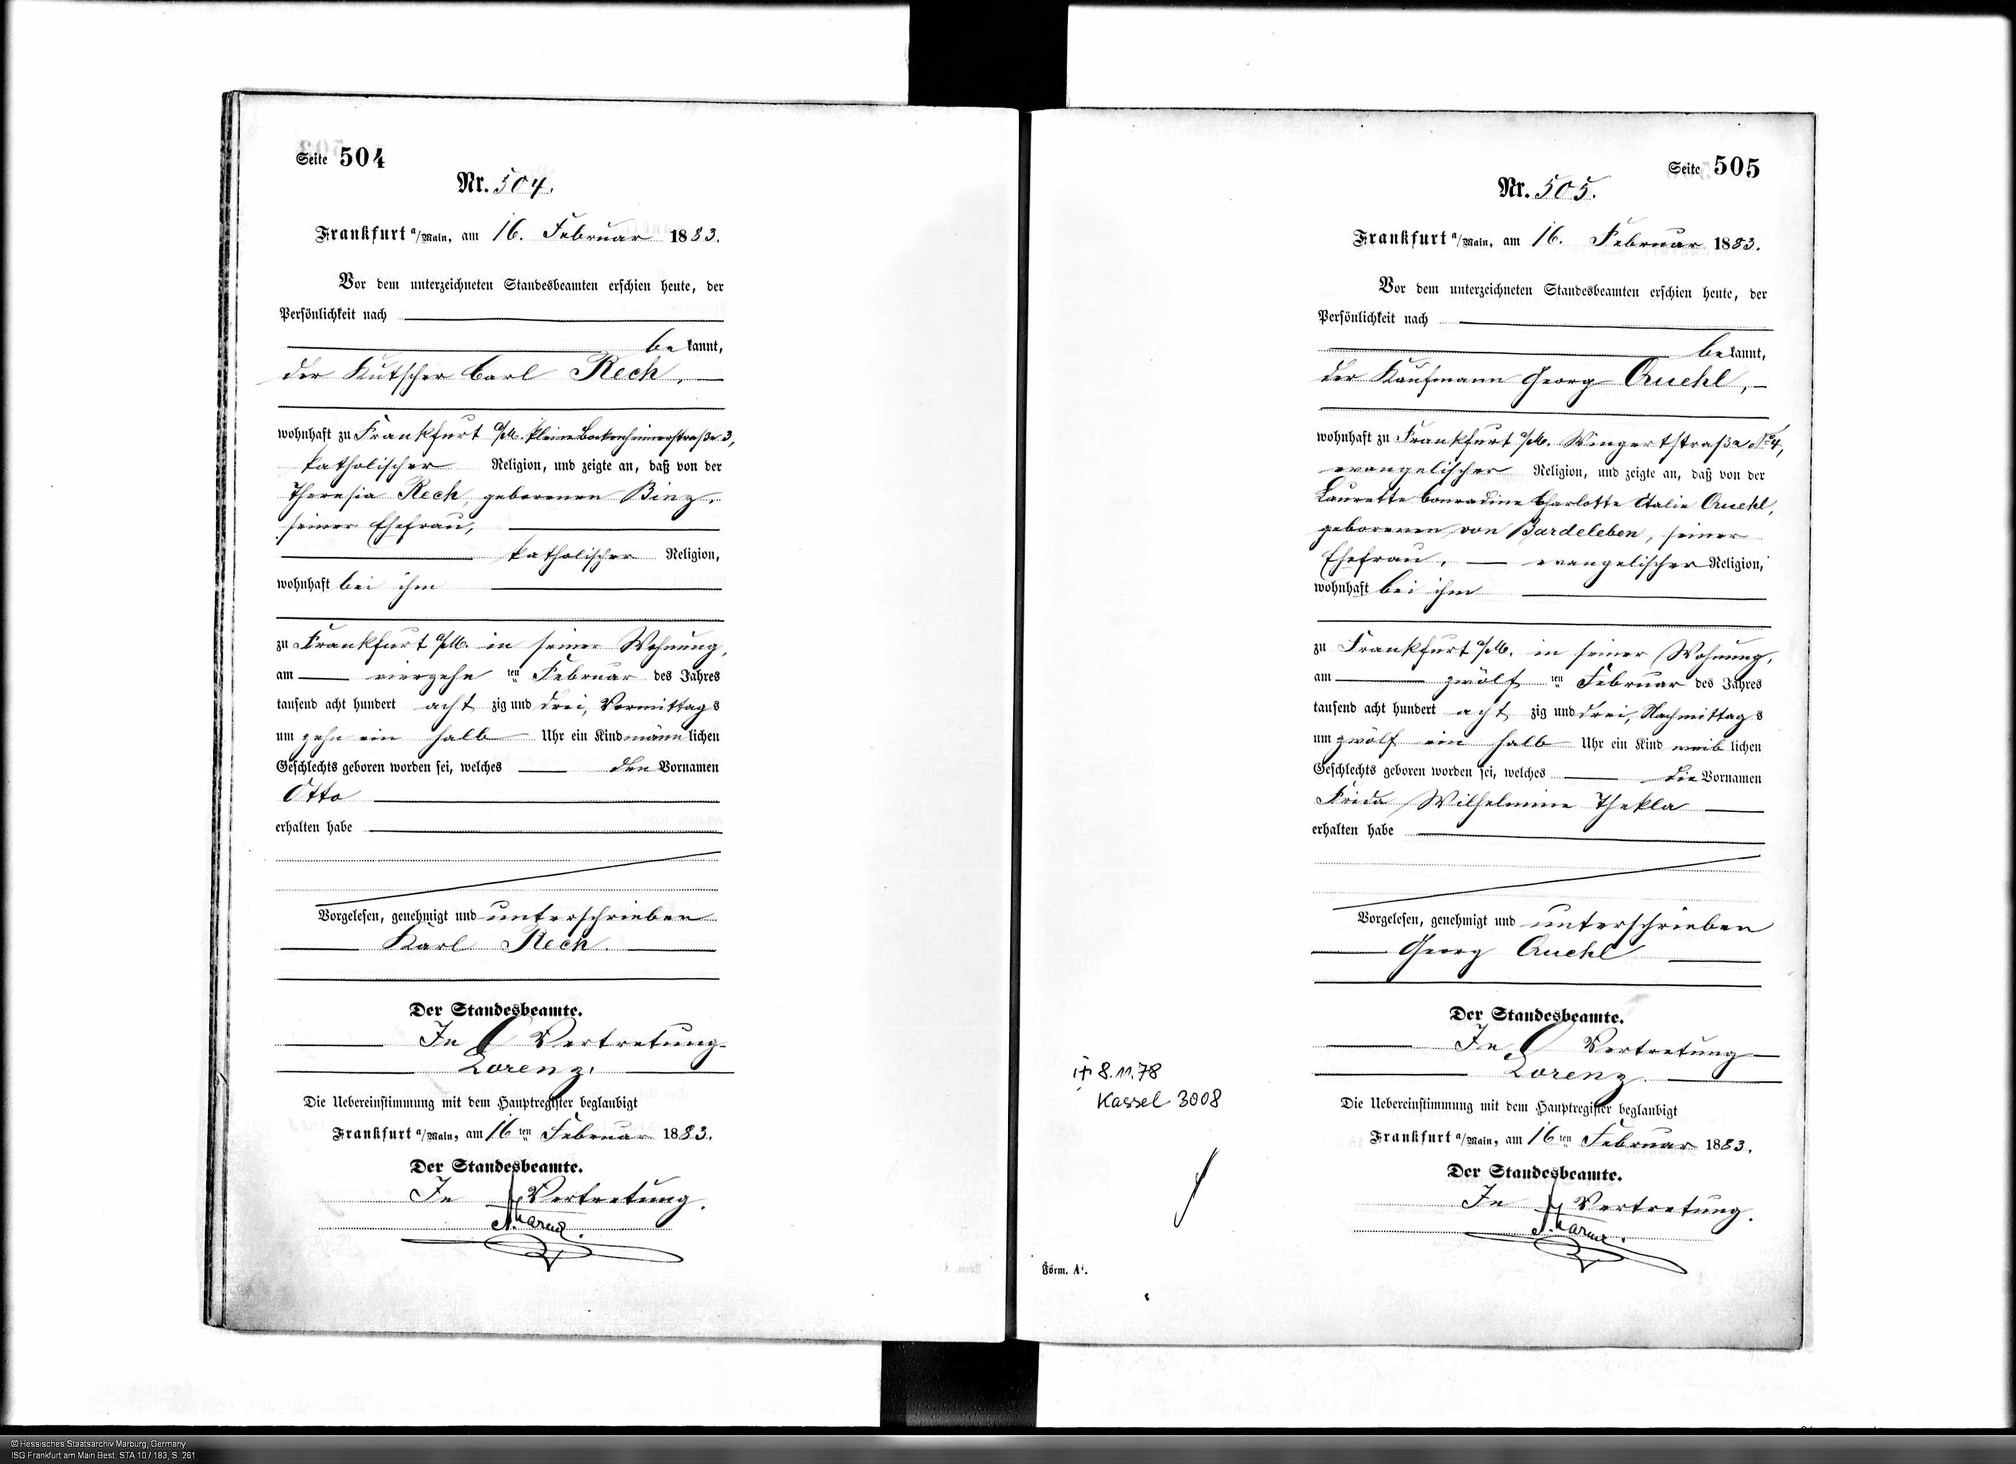 Seite 504
Nr. 504.
Frankfurt a/Main, am 16. Februar 1883.
Vor dem unterzeichneten Standesbeamten erschien heute, der
Persönlichkeit nach
bekannt,
der Kutscher Carl Rech,
wohnhaft zu Frankfurt a/M. kleine Bockenheimerstraße 3,
katholischer Religion, und zeigte an, daß von der
Theresia Rech, geborenen Binz,
seiner Ehefrau,
katholischer Religion,
wohnhaft bei ihm
zu Frankfurt a/M. in seiner Wohnung,
am vierzehn ten Februar des Jahres
tausend acht hundert acht zig und drei, Vormittags
um zehn ein halb Uhr ein Kind männlichen
Geschlechts geboren worden sei, welches den Vornamen
Otto
erhalten habe
Vorgelesen, genehmigt und unterschrieben
Karl Rech.
Der Standesbeamte.
In Vertretung
Lorenz.
Die Uebereinstimmung mit dem Hauptregister beglaubigt
Frankfurt a/Main, am 16ten Februar 1883.
Der Standesbeamte.
In Vertretung.
Seite 505
Nr. 505.
Frankfurt a/Main, am 16. Februar 1883.
Vor dem unterzeichneten Standesbeamten erschien heute, der
Persönlichkeit nach
bekannt,
der Kaufmann Georg Quehl,
wohnhaft zu Frankfurt a/M. Wingertstraße No 4,
evangelischer Religion, und zeigte an, daß von der
Laurette Conradine Charlotte Italie Quehl,
geborenen von Bardeleben, seiner
Ehefrau, evangelischer Religion,
wohnhaft bei ihm
zu Frankfurt a/M. in seiner Wohnung,
am zwölf ten Februar des Jahres
tausend acht hundert acht zig und drei, Nachmittags
um zwölf ein halb Uhr ein Kind weiblichen
Geschlechts geboren worden sei, welches die Vornamen
Frida Wilhelmine Thekla
erhalten habe
Vorgelesen, genehmigt und unterschrieben
Georg Quehl
Der Standesbeamte.
In Vertretung
Lorenz.
Die Uebereinstimmung mit dem Hauptregister beglaubigt
Frankfurt a/Main, am 16ten Februar 1883.
Der Standesbeamte.
In Vertretung.
8.11.78
Kassel 3008
Form. A1.
© Hessisches Staatsarchiv Marburg, Germany
ISG Frankfurt am Main Best. STA 10 / 183, S. 261